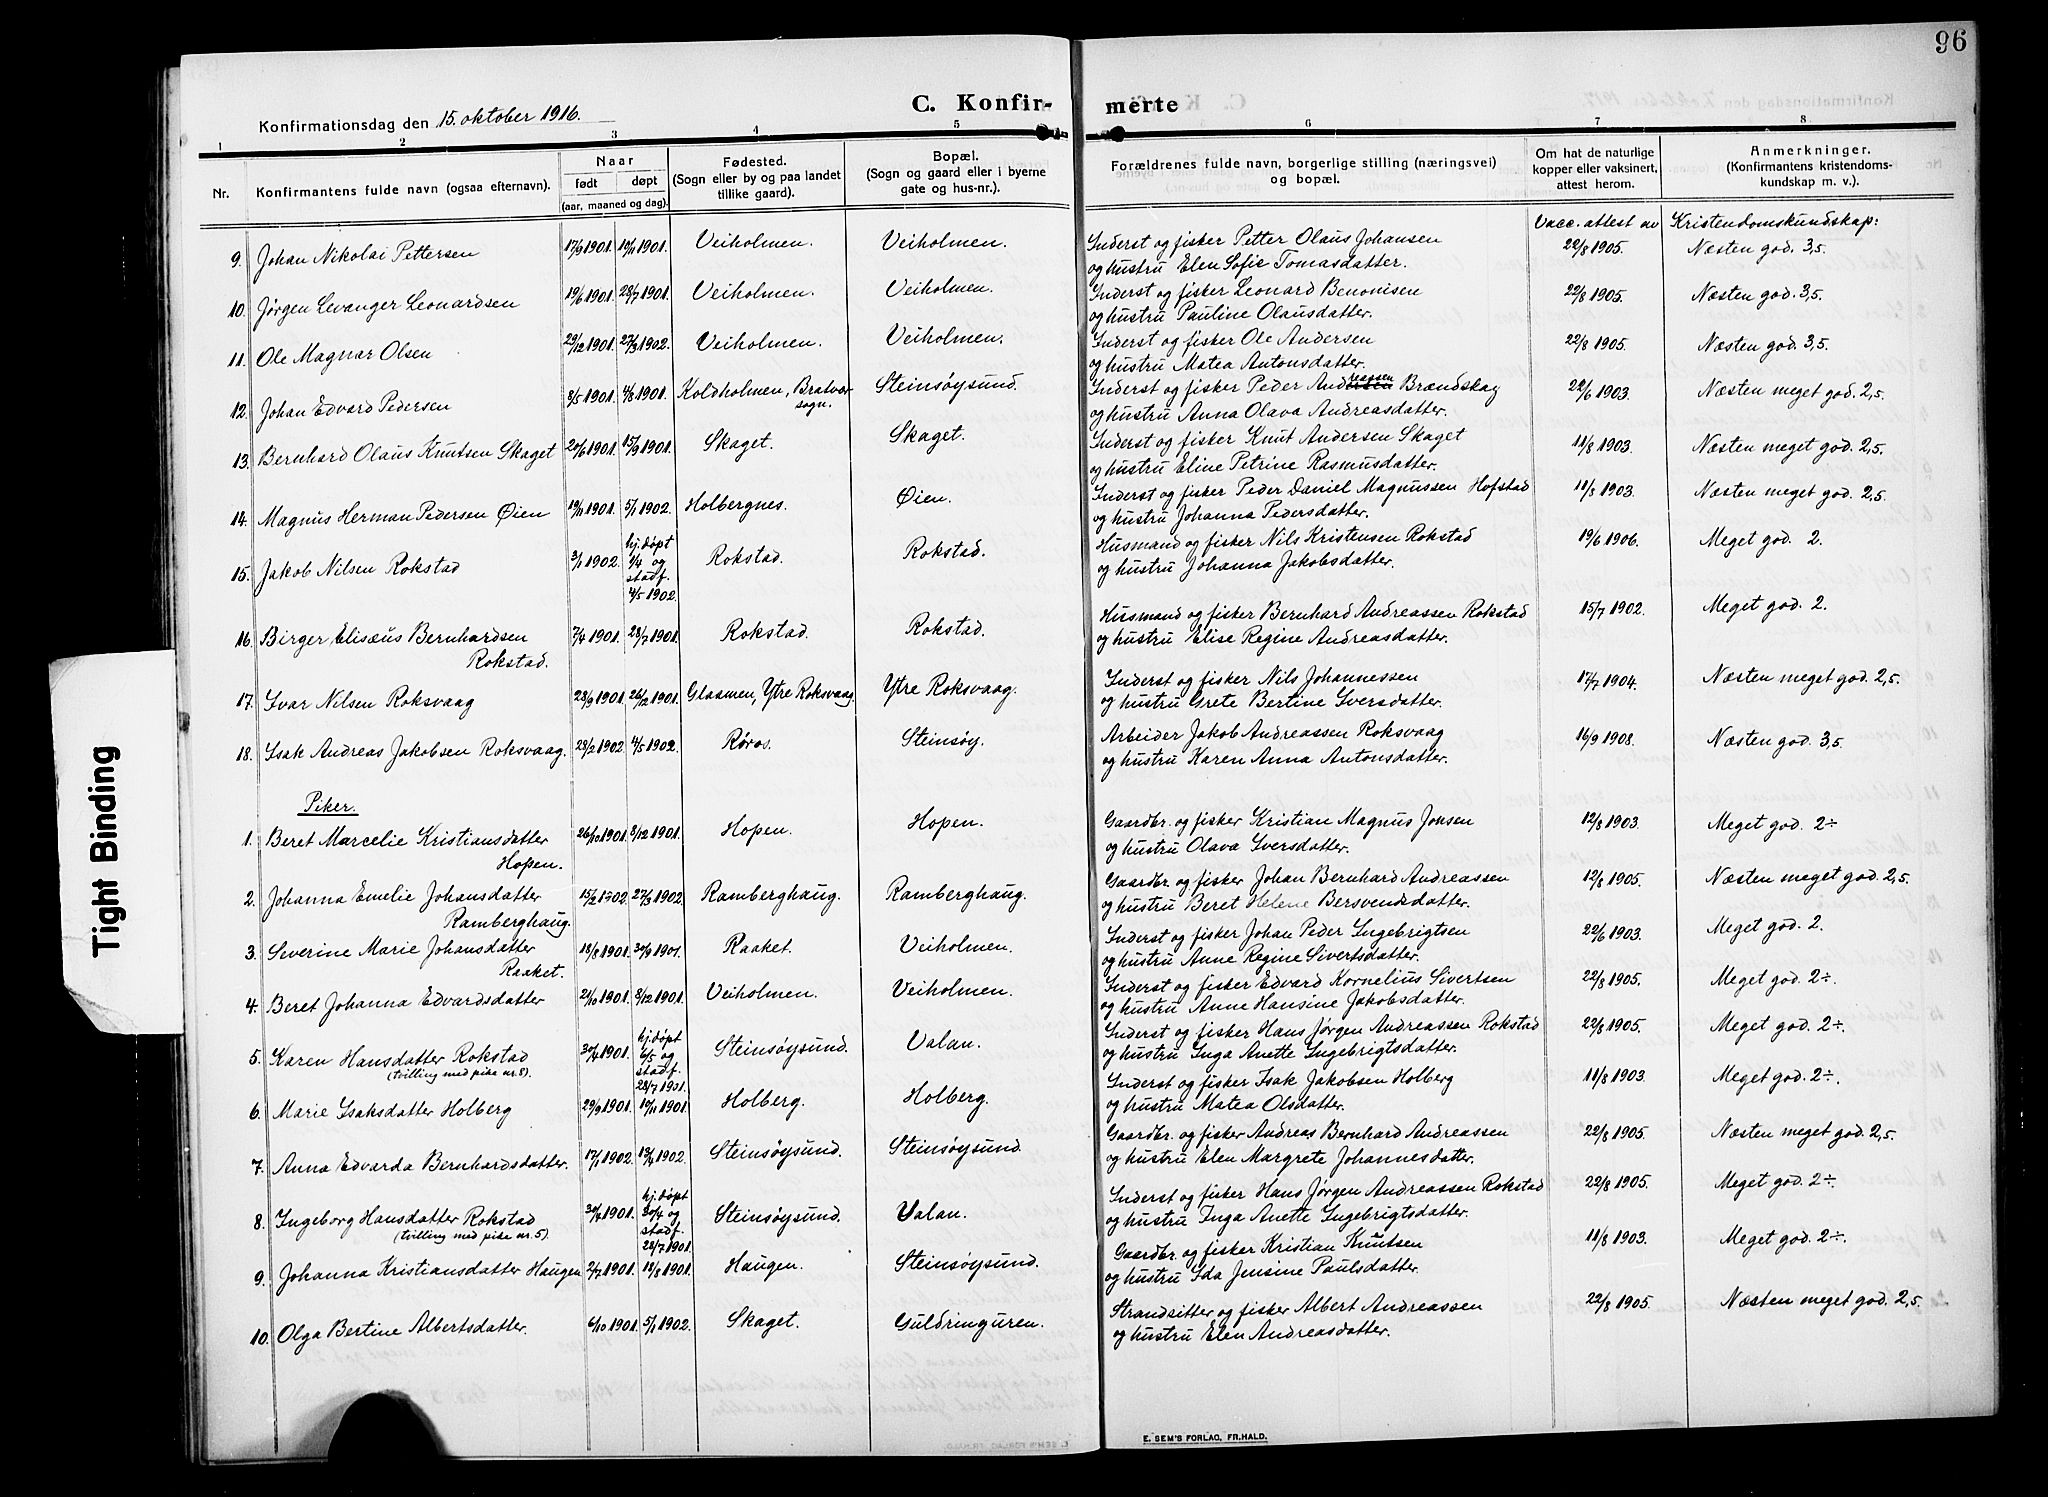 96
Konfirmationsdag den 15. oktober 1916.
C. Konfirmerte
1 2 3 4 5 6 7 8
Nr.
Konfirmantens fulde navn (ogsaa efternavn).
Naar
født døpt
(aar, maaned og dag).
Fødested.
(Sogn eller by og paa landet
tillike gaard).
Bopæl.
(Sogn og gaard eller i byerne
gate og hus-nr.).
Forældrenes fulde navn, borgerlige stilling (næringsvei)
og bopæl.
Om hat de naturlige
kopper eller vaksinert,
attest herom.
Anmerkninger.
(Konfirmantens kristendoms-
kundskap m. v.).
Vacc. attest av Kristendomskundskap:
9. Johan Nikolai Pettersen 17/9 1901. 10/11 1901. Veiholmen. Veiholmen. Inderst og fisker Petter Olaus Johansen 22/8 1905. Næsten god. 3,5.
og hustru Elen Sofie Tomasdatter.
10. Jørgen Levanger Leonardsen 19/6 1901. 28/7 1901. Veiholmen. Veiholmen. Inderst og fisker Leonard Benonisen 22/8 1905. Næsten god. 3,5.
og hustru Pauline Olausdatter.
11. Ole Magnar Olsen 29/12 1901. 27/3 1902. Veiholmen. Veiholmen. Inderst og fisker Ole Andersen 22/8 1905. Næsten god. 3,5.
og hustru Matea Antonsdatter.
12. Johan Edvard Pedersen 8/5 1901. 4/8 1901. Koldholmen, Bratvær sogn. Steinsøysund. Inderst og fisker Peder Andreassen Brændskag 22/6 1903. Næsten meget god. 2,5.
og hustru Anna Olava Andreasdatter.
13. Bernhard Olaus Knutsen Skaget 20/6 1901. 15/9 1901. Skaget. Skaget. Inderst og fisker Knut Andersen Skaget 11/8 1903. Næsten meget god. 2,5.
og hustru Eline Petrine Rasmusdatter.
14. Magnus Herman Pedersen Øien 19/11 1901. 5/1 1902. Holbergnes. Øien. Inderst og fisker Peder Daniel Magnussen Hofstad 11/8 1903. Næsten meget god. 2,5.
og hustru Johanna Pedersdatter.
15. Jakob Nilsen Rokstad 3/1 1902. hj. døpt 1/4 og stadf. 4/5 1902. Rokstad. Rokstad. Husmand og fisker Nils Kristensen Rokstad 19/6 1906. Meget god. 2.
og hustru Johanna Jakobsdatter.
16. Birger Elisæus Bernhardsen Rokstad. 7/4 1901. 28/7 1901. Rokstad. Rokstad. Husmand og fisker Bernhard Andreassen Rokstad 15/7 1902. Meget god. 2.
og hustru Elise Regine Andreasdatter.
17. Ivar Nilsen Roksvaag 28/9 1901. 26/12 1901. Glasmen, Ytre Roksvaag. Ytre Roksvaag. Inderst og fisker Nils Johannessen 17/7 1904. Næsten meget god. 2,5.
og hustru Grete Bertine Iversdatter.
18. Isak Andreas Jakobsen Roksvaag. 28/2 1902. 4/5 1902. Røros. Steinsøy. Arbeider Jakob Andreassen Roksvaag 16/9 1908. Næsten god. 3,5.
og hustru Karen Anna Antonsdatter.
Piker.
1. Beret Marcelie Kristiansdatter Hopen. 26/10 1901. 8/12 1901. Hopen. Hopen. Gaardbr. og fisker Kristian Magnus Jonsen 12/8 1903. Meget god. 2÷
og hustru Olava Iversdatter.
2. Johanna Emelie Johansdatter Ramberghaug. 15/2 1902. 27/3 1902. Ramberghaug. Ramberghaug. Gaardbr. og fisker Johan Bernhard Andreassen 12/8 1905. Næsten meget god. 2,5.
og hustru Beret Helene Bersvendsdatter.
3. Severine Marie Johansdatter Raaket. 18/8 1901. 30/9 1901. Raaket. Veiholmen. Inderst og fisker Johan Peder Ingebrigtsen 22/6 1903. Meget god. 2.
og hustru Anne Regine Sivertsdatter.
4. Beret Johanna Edvardsdatter 21/10 1901. 8/12 1901. Veiholmen. Veiholmen. Inderst og fisker Edvard Kornelius Sivertsen 22/8 1905. Meget god. 2÷.
og hustru Anne Hansine Jakobsdatter.
5. Karen Hansdatter Rokstad (tvilling med pike nr. 8). 30/4 1901. hj. døpt 6/5 og stadf. 28/7 1901. Steinsøysund. Valan. Inderst og fisker Hans Jørgen Andreassen Rokstad 22/8 1905. Meget god. 2÷.
og hustru Inga Anette Ingebrigtsdatter.
6. Marie Isaksdatter Holberg 29/9 1901. 10/11 1901. Holberg. Holberg. Inderst og fisker Isak Jakobsen Holberg 11/8 1903. Meget god. 2÷.
og hustru Matea Olsdatter.
7. Anna Edvarda Bernhardsdatter. 17/1 1902. 13/4 1902. Steinsøysund. Steinsøysund. Gaardbr. og fisker Andreas Bernhard Andreassen 22/8 1905. Næsten meget god. 2,5.
og hustru Elen Margrete Johannesdatter.
8. Ingeborg Hansdatter Rokstad (tvilling med pike nr. 5). 30/4 1901. hj. døpt 30/4 og stadf. 28/7 1901. Steinsøysund. Valan. Inderst og fisker Hans Jørgen Andreassen Rokstad 22/8 1905. Meget god. 2÷.
og hustru Inga Anette Ingebrigtsdatter.
9. Johanna Kristiansdatter Haugen 2/7 1901. 18/8 1901. Haugen. Steinsøysund. Gaardbr. og fisker Kristian Knutsen 11/8 1903. Meget god. 2÷.
og hustru Ida Jensine Paulsdatter.
10. Olga Bertine Albertsdatter. 6/10 1901. 5/1 1902. Skaget. Guldringuren. Strandsitter og fisker Albert Andreassen 22/8 1905. Næsten meget god. 2,5.
og hustru Elen Andreasdatter.
E. SEM'S FORLAG, FR.HALD.
Tight Binding